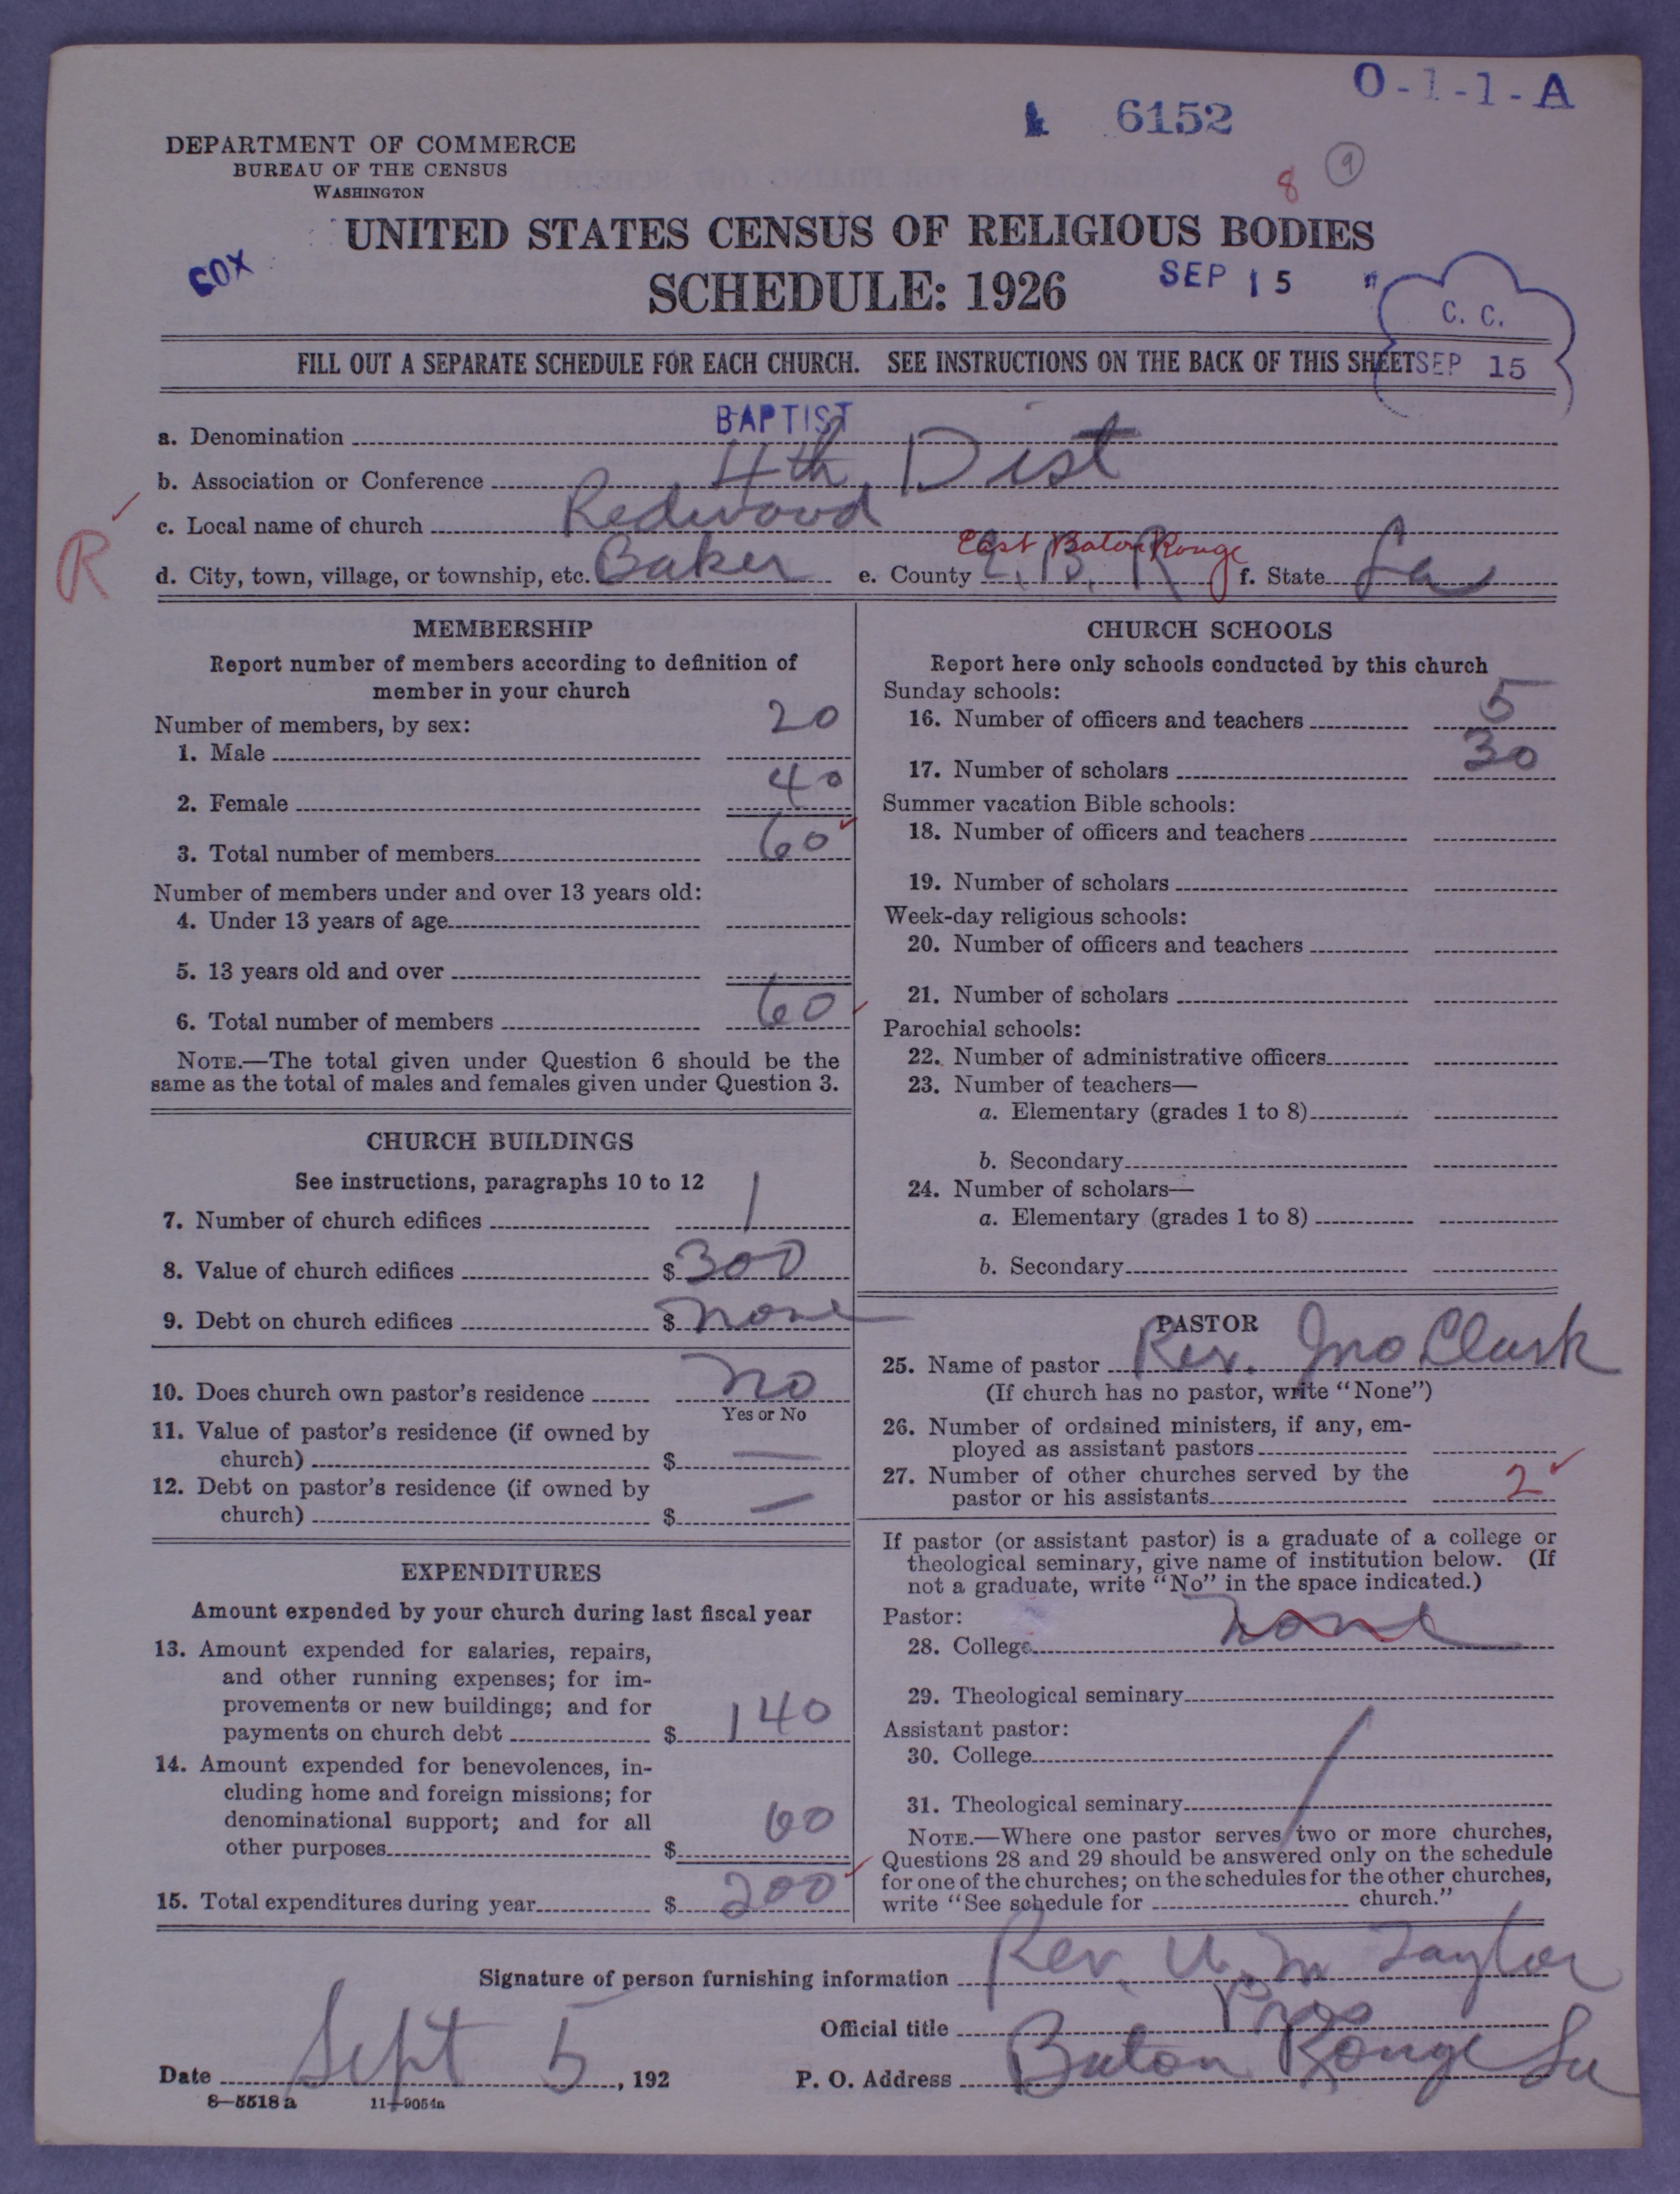 O-1-1-A
6152
8 9
DEPARTMENT OF COMMERCE
BUREAU OF THE CENSUS
WASHINGTON
UNITED STATES CENSUS OF RELIGIOUS BODIES
COX
SCHEDULE: 1926
SEP 15
C. C.
SEP 15
FILL OUT A SEPARATE SCHEDULE FOR EACH CHURCH. SEE INSTRUCTIONS ON THE BACK OF THIS SHEET
a. Denomination BAPTIST
b. Association or Conference 4th Dist
c. Local name of church Redwood
R
d. City, town, village, or township, etc. Baker e. County E. B. R East Baton Rouge f. State La
MEMBERSHIP
Report number of members according to definition of
member in your church
Number of members, by sex:
1. Male 20
2. Female 40
3. Total number of members 60
Number of members under and over 13 years old:
4. Under 13 years of age
5. 13 years old and over
6. Total number of members 60
NOTE.—The total given under Question 6 should be the
same as the total of males and females given under Question 3.
CHURCH BUILDINGS
See instructions, paragraphs 10 to 12
7. Number of church edifices 1
8. Value of church edifices $ 300
9. Debt on church edifices $ none
10. Does church own pastor's residence no
Yes or No
11. Value of pastor's residence (if owned by
church) $ —
12. Debt on pastor's residence (if owned by
church) $ —
EXPENDITURES
Amount expended by your church during last fiscal year
13. Amount expended for salaries, repairs,
and other running expenses; for im-
provements or new buildings; and for
payments on church debt $ 140
14. Amount expended for benevolences, in-
cluding home and foreign missions; for
denominational support; and for all
other purposes $ 60
15. Total expenditures during year $ 200
CHURCH SCHOOLS
Report here only schools conducted by this church
Sunday schools:
16. Number of officers and teachers 5
17. Number of scholars 30
Summer vacation Bible schools:
18. Number of officers and teachers
19. Number of scholars
Week-day religious schools:
20. Number of officers and teachers
21. Number of scholars
Parochial schools:
22. Number of administrative officers
23. Number of teachers—
a. Elementary (grades 1 to 8)
b. Secondary
24. Number of scholars—
a. Elementary (grades 1 to 8)
b. Secondary
PASTOR
25. Name of pastor Rev. Jno Clark
(If church has no pastor, write "None")
26. Number of ordained ministers, if any, em-
ployed as assistant pastors
27. Number of other churches served by the
pastor or his assistants 2
If pastor (or assistant pastor) is a graduate of a college or
theological seminary, give name of institution below. (If
not a graduate, write "No" in the space indicated.)
Pastor:
28. College none
29. Theological seminary
Assistant pastor:
30. College
31. Theological seminary
NOTE.—Where one pastor serves two or more churches,
Questions 28 and 29 should be answered only on the schedule
for one of the churches; on the schedules for the other churches,
write "See schedule for church."
Signature of person furnishing information Rev. U. M Taylor
Official title Pres
Date Sept 5, 192 P. O. Address Baton Rouge La
8—5518 a 11—9054a